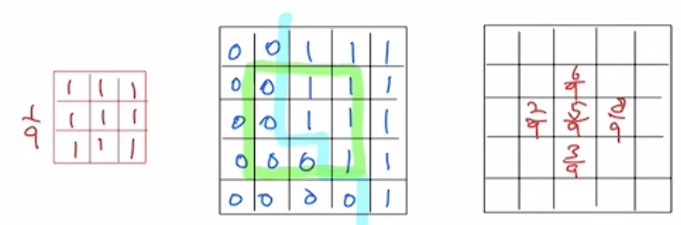 1/9
1 1 1
1 1 1
1 1 1
0 0 1 1 1
0 0 1 1 1
0 0 1 1 1
0 0 0 1 1
0 0 0 0 1
6/9
2/9 5/9 8/9
3/9